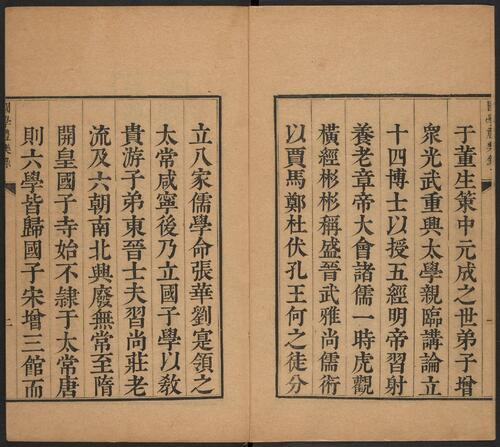 于董生策中元成之世弟子增
衆光武重興太學親臨講論立
十四博士以授五經明帝習射
養老章帝大會諸儒一時虎觀
橫經彬彬稱盛晉武雅尚儒術
以賈馬鄭杜伏孔王何之徒分
立八家儒學命張華劉寔領之
太常咸寧後乃立國子學以敎
貴游子弟東晉士夫習尚莊老
流及六朝南北興廢無常至隋
開皇國子寺始不隷于太常唐
則六學皆歸國子宋增三館而